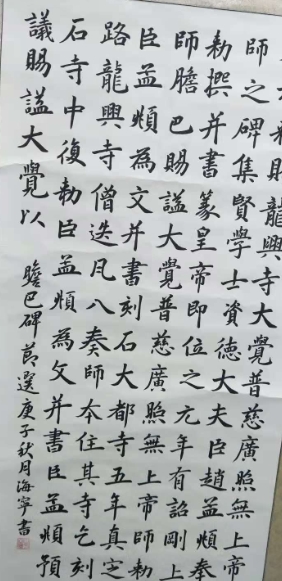 賜龍興寺大覺普慈廣照無上帝
師之碑集賢學士資德大夫臣趙孟頫奉
勅撰并書篆皇帝即位之元年有詔剛上
師膽巴賜謚大覺普慈廣照無上帝師勅
臣孟頫為文并書刻石大都寺五年真定
路龍興寺僧迭凡八奏師本住其寺乞刻
石寺中復勅臣孟頫為文并書臣孟頫預
議賜謚大覺以
膽巴碑節選庚子秋月海寧書